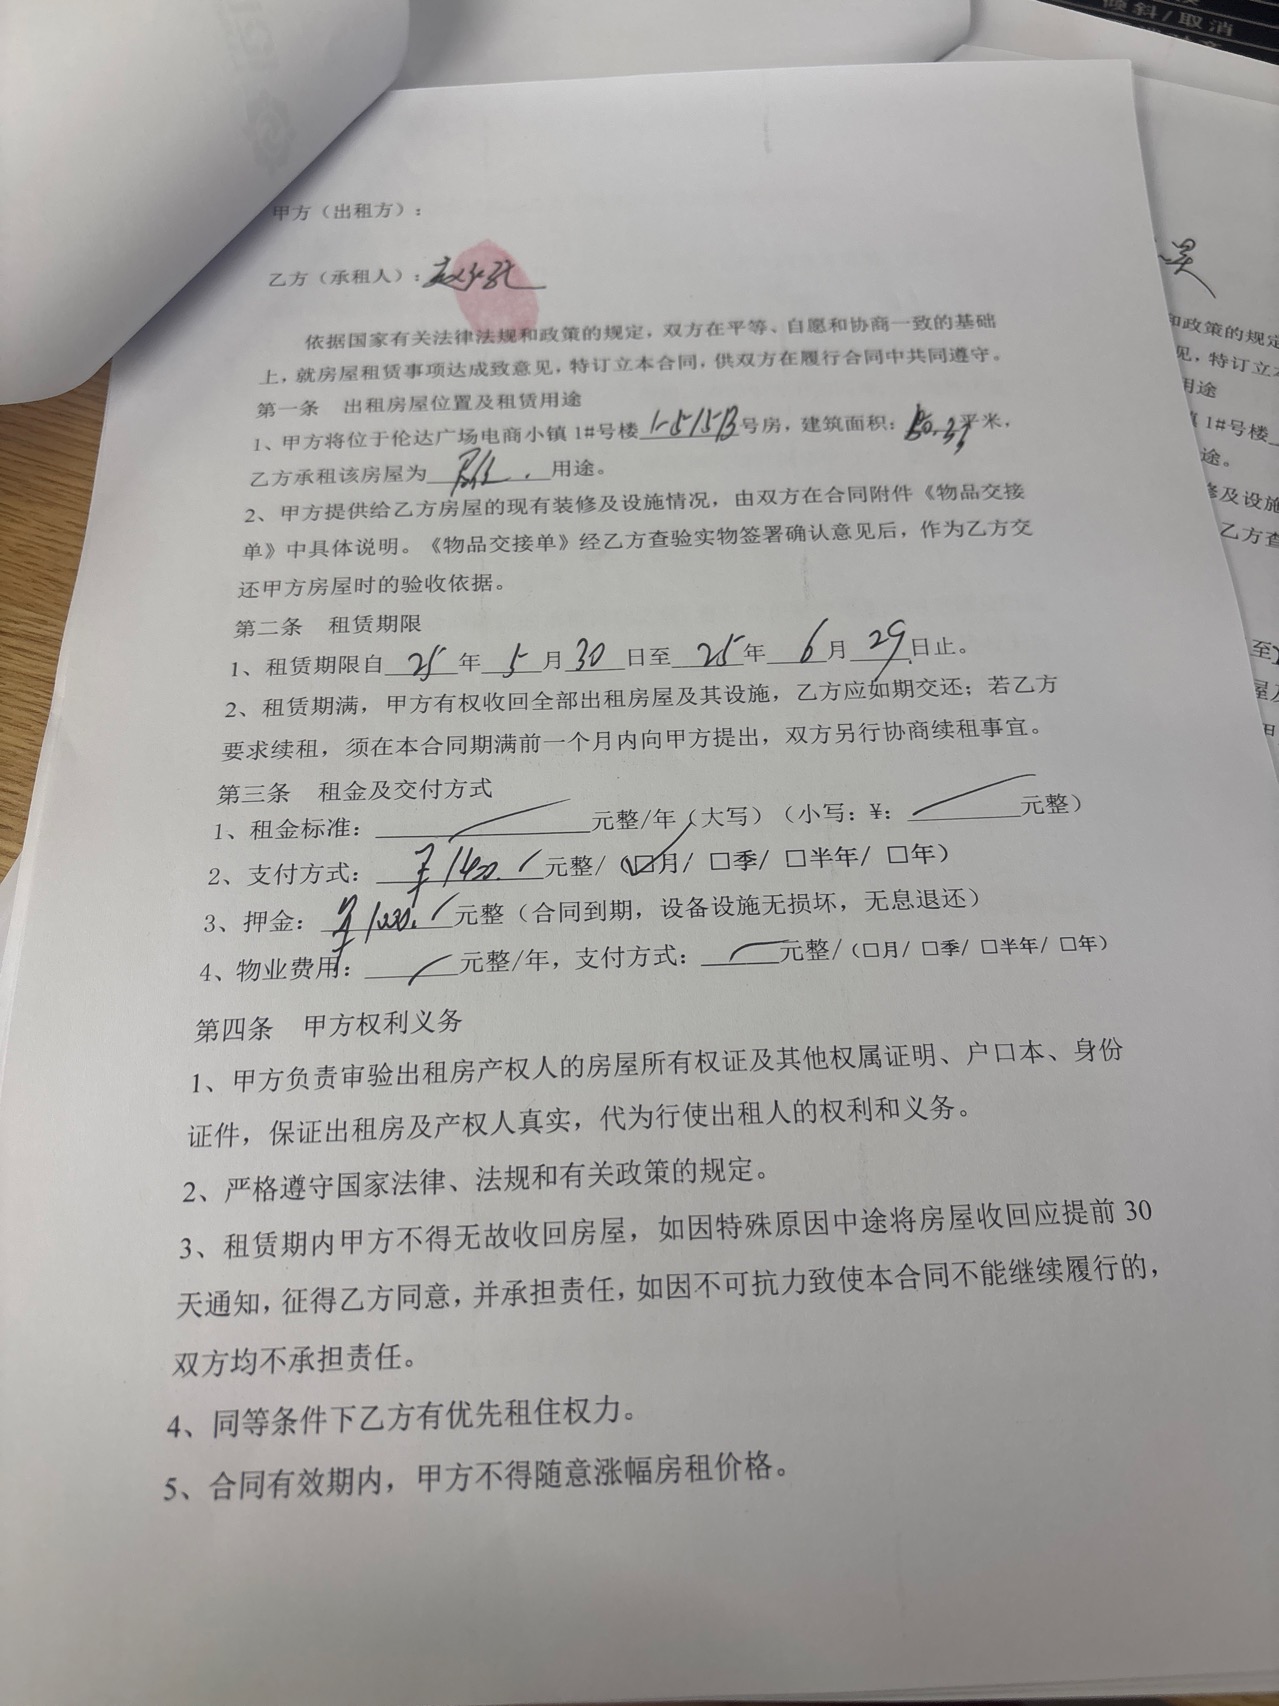 倾斜/取消
甲方（出租方）：
乙方（承租人）：
依据国家有关法律法规和政策的规定，双方在平等、自愿和协商一致的基础
上，就房屋租赁事项达成致意见，特订立本合同，供双方在履行合同中共同遵守。
第一条 出租房屋位置及租赁用途
1、甲方将位于伦达广场电商小镇 1#号楼 1-515B 号房，建筑面积： 平米，
乙方承租该房屋为 用途。
2、甲方提供给乙方房屋的现有装修及设施情况，由双方在合同附件《物品交接
单》中具体说明。《物品交接单》经乙方查验实物签署确认意见后，作为乙方交
还甲方房屋时的验收依据。
第二条 租赁期限
1、租赁期限自 25 年 5 月 30 日至 25 年 6 月 29 日止。
2、租赁期满，甲方有权收回全部出租房屋及其设施，乙方应如期交还；若乙方
要求续租，须在本合同期满前一个月内向甲方提出，双方另行协商续租事宜。
第三条 租金及交付方式
1、租金标准： 元整/年（大写）（小写：¥： 元整）
2、支付方式： 元整/（☑月/ □季/ □半年/ □年）
3、押金： 元整（合同到期，设备设施无损坏，无息退还）
4、物业费用： 元整/年，支付方式： 元整/（□月/ □季/ □半年/ □年）
第四条 甲方权利义务
1、甲方负责审验出租房产权人的房屋所有权证及其他权属证明、户口本、身份
证件，保证出租房及产权人真实，代为行使出租人的权利和义务。
2、严格遵守国家法律、法规和有关政策的规定。
3、租赁期内甲方不得无故收回房屋，如因特殊原因中途将房屋收回应提前 30
天通知，征得乙方同意，并承担责任，如因不可抗力致使本合同不能继续履行的，
双方均不承担责任。
4、同等条件下乙方有优先租住权力。
5、合同有效期内，甲方不得随意涨幅房租价格。
和政策的规定
见，特订立本
用途
1#号楼
途。
修及设施
乙方查
至